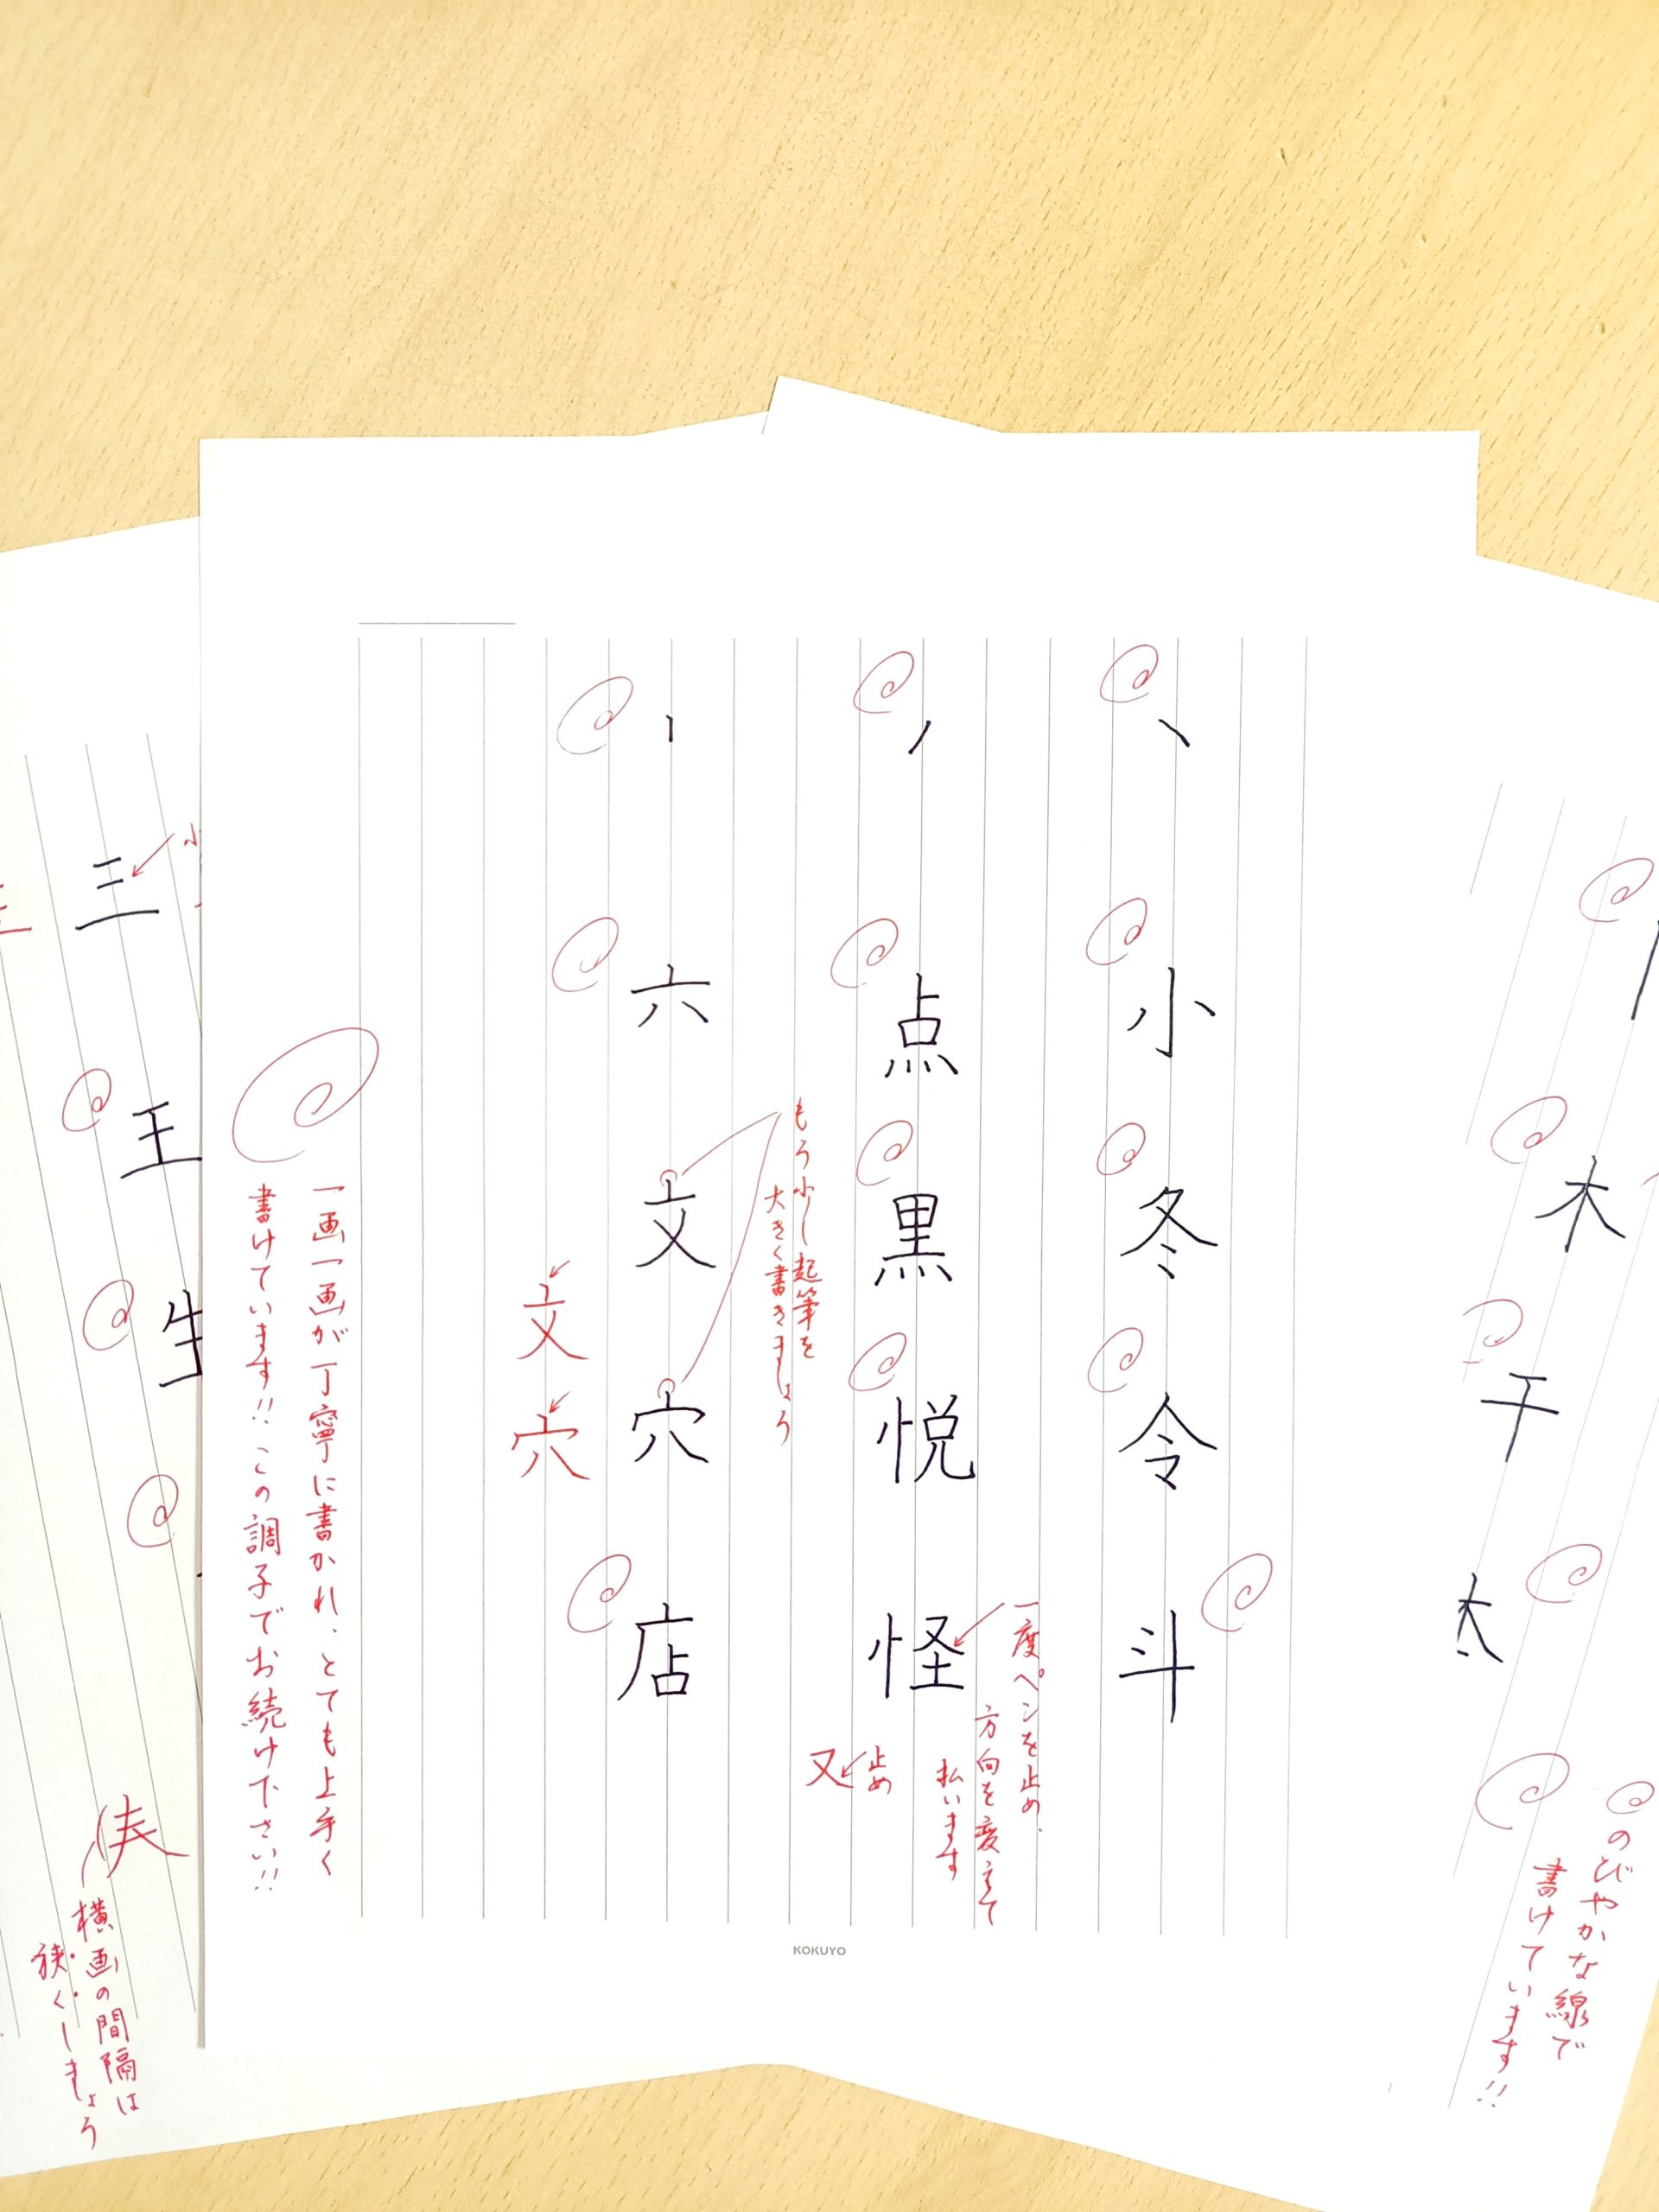 丶
小
冬
令
斗
一度ペンを止め、
方向を変えて
払います
止め
又
点
黒
悦
怪
もう少し起筆を
大きく書きましょう
六
文
穴
店
文
穴
一画一画が丁寧に書かれ、とても上手く
書けています!!この調子でお続け下さい!!
KOKUYO
木
干
太
のびやかな線で
書けています!!
三
王
生
横画の間隔は
狭くしましょう